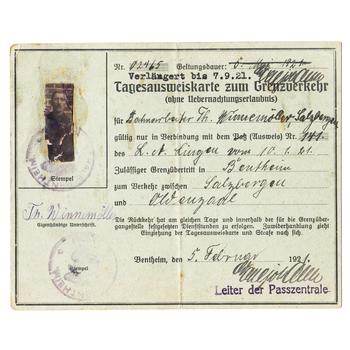 Nr. 02465 Geltungsdauer: 5. Mai 1921.
Verlängert bis 7.9.21.
Tagesausweiskarte zum Grenzverkehr
(ohne Uebernachtungserlaubnis)
für Bahnarbeiter Th. Winnemöller, Salzbergen
gültig nur in Verbindung mit dem Paß (Ausweis) Nr.
des L. A. Lingen vom 10. 1. 21.
Zulässiger Grenzübertritt in Bentheim
zum Verkehr zwischen Salzbergen
und Oldenzaal
Die Rückkehr hat am gleichen Tage und innerhalb der für die Grenzüber-
gangsstelle festgesetzten Dienststunden zu erfolgen. Zuwiderhandlung zieht
Einziehung der Tagesausweiskarte und Strafe nach sich.
Bentheim, den 5. Februar 1921.
Leiter der Passzentrale
Stempel
Th. Winnemöller
Eigenhändige Unterschrift.
Stempel
BENTHEIM